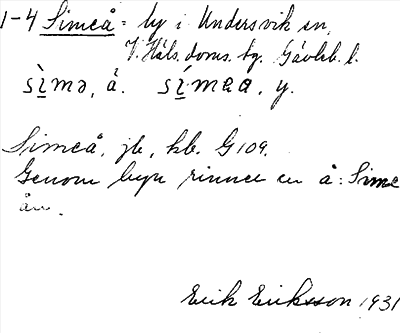 1-4 Simeå = by i Undersvik sn,
V. Häls. doms. bg. Gävleb. l.
sìmə, å. símea, y.
Simeå, jb, kb. G 109.
Genom byn rinner en å: Sime
ån.
Erik Eriksson 1931